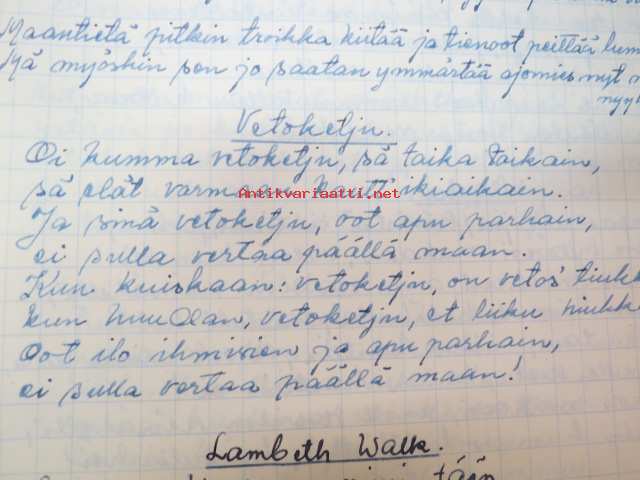 Maantietä pitkin troikka kiitää ja tienoot peittää lum
Mä myöskin sen jo saatan ymmärtää ajomies nyt
Vetoketju.
Oi kumma vetoketju, sä taika taikain,
sä elät varmaan kautt' ikiaikain.
Antikvariaatti.net
Ja sinä vetoketju, oot apu parhain,
ei sulla vertaa päällä maan.
Kun kuiskaan: vetoketju, on vetos' tiukk
kun huudan, vetoketju, et liiku hiukk
Oot ilo ihmisien ja apu parhain,
ei sulla vertaa päällä maan!
Lambeth Walk.
tään